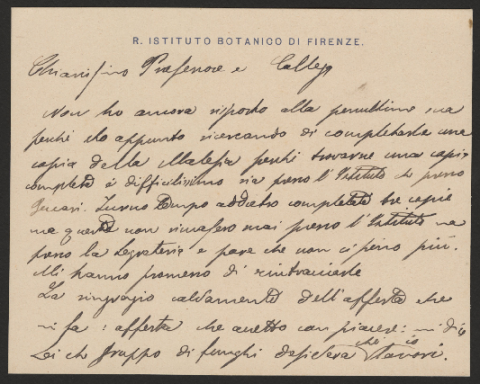 R. ISTITUTO BOTANICO DI FIRENZE.
Chiarissimo Professore e Collega
Non ho ancora risposto alla penultima sua
perché sto appunto cercando di completarle una
copia della Malesia perché trovarne una copia
completa è difficilissimo sia presso l'Istituto che presso
tempo addietro completate tre copie
ma queste non rimasero mai presso l'Istituto ma
presso la Segreteria e pare che non ci sieno più.
Mi hanno promesso di rintracciarle
La ringrazio caldamente dell'offerta che
mi fa: offerta che accetto con piacere: mi dica
Lei che gruppo di funghi desidera che io lavori.